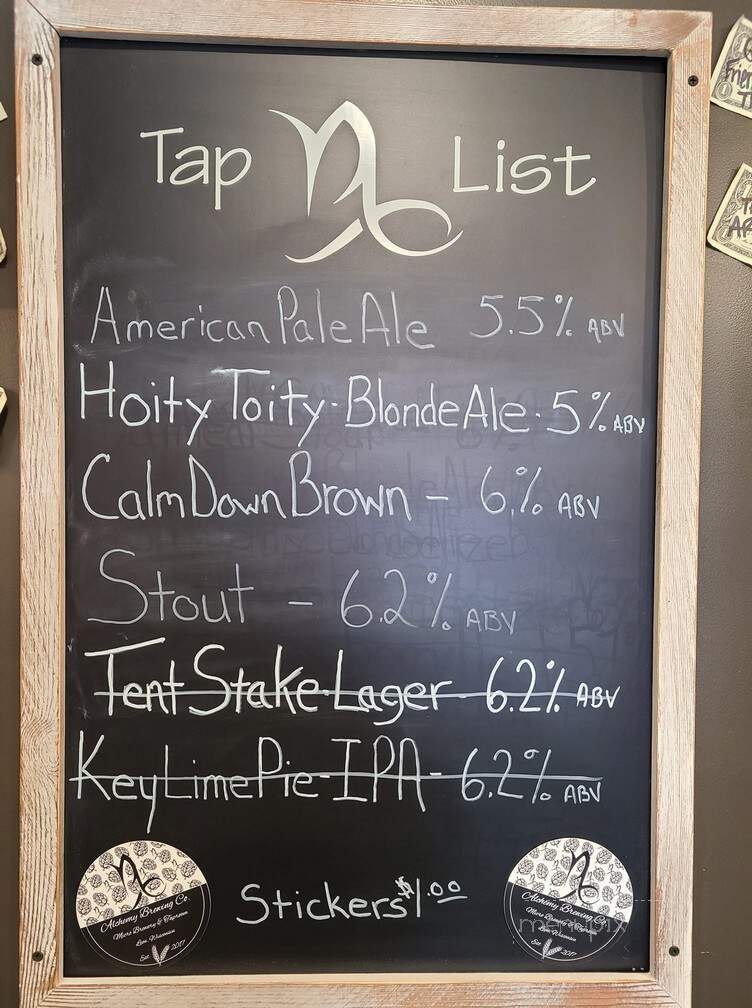 Tap List
American Pale Ale 5.5% ABV
Hoity Toity - Blonde Ale - 5% ABV
Calm Down Brown - 6% ABV
Stout - 6.2% ABV
Tent Stake Lager - 6.2% ABV
Key Lime Pie - IPA - 6.2% ABV
Stickers $1.00
Alchemy Brewing Co.
Micro Brewery & Taproom
Wisconsin
Est 2017
Alchemy Brewing Co.
Micro Brewery & Taproom
Wisconsin
Est 2017
menupix